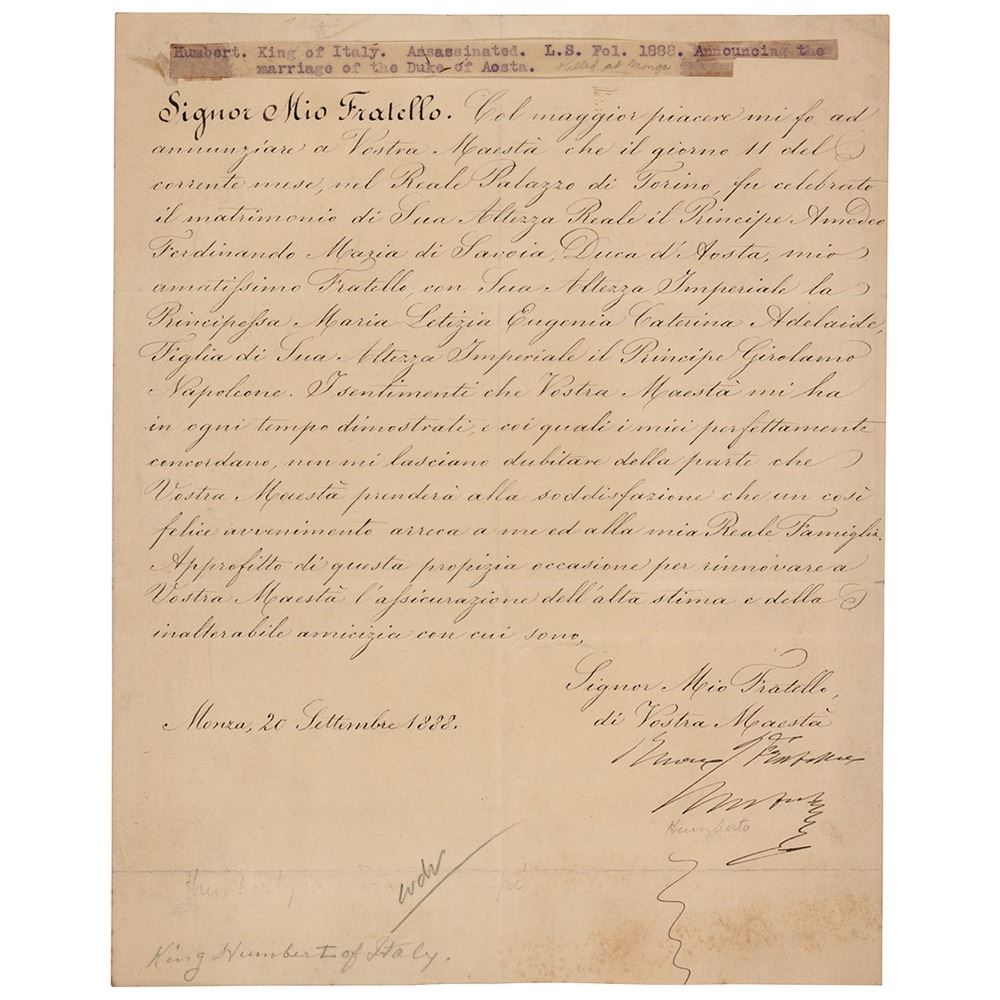 Humbert. King of Italy. Assassinated. L.S. Fol. 1888. Announcing the
marriage of the Duke of Aosta. Killed at Monza
Signor Mio Fratello. Col maggior piacere mi fo ad
annunziare a Vostra Maestà che il giorno 11 del
corrente mese, nel Reale Palazzo di Torino, fu celebrato
il matrimonio di Sua Altezza Reale il Principe Amedeo
Ferdinando Maria di Savoia, Duca d'Aosta, mio
amatissimo Fratello, con Sua Altezza Imperiale la
Principessa Maria Letizia Eugenia Caterina Adelaide,
Figlia di Sua Altezza Imperiale il Principe Girolamo
Napoleone. I sentimenti che Vostra Maestà mi ha
in ogni tempo dimostrati, e coi quali i miei perfettamente
concordano, non mi lasciano dubitare della parte che
Vostra Maestà prenderà alla soddisfazione che un così
felice avvenimento arreca a me ed alla mia Reale Famiglia.
Approfitto di questa propizia occasione per rinnovare a
Vostra Maestà l'assicurazione dell'alta stima e della
inalterabile amicizia con cui sono,
Signor Mio Fratello,
di Vostra Maestà
Monza, 20 Settembre 1888.
Buon Fratello
Umberto
Humberto
Humbert,
wdw
King Humbert of Italy.